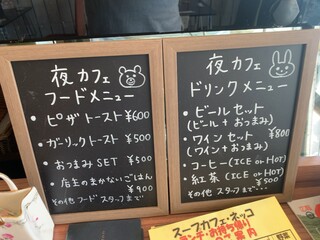 夜カフェ
フードメニュー
・ピザトースト ¥600
・ガーリックトースト ¥500
・おつまみSET ¥500
・店主のまかないごはん
¥900
その他 フード スタッフまで
夜カフェ
ドリンクメニュー
・ビールセット
(ビール+おつまみ)
・ワインセット ¥800
(ワイン+おつまみ)
・コーヒー(ICE or HOT)
・紅茶(ICE or HOT)
¥500
その他 スタッフまで…
スープカフェ・ネッコ
ランチ・お持ち帰り
ご案内